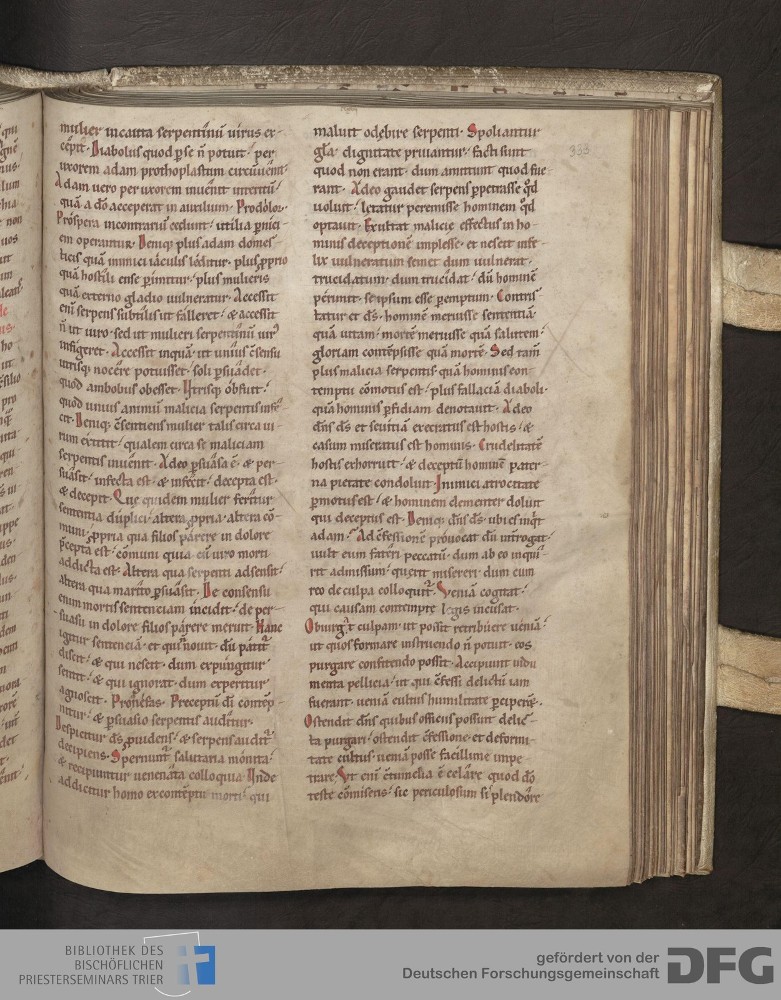 mulier incauta serpentinū uirus ex-
cepit. Diabolus quod ꝑ se n̄ potuit. per
uxorem adam prothoplastum circūuenit.
Adam uero per uxorem inuenit interitū.
quā a dō acceperat in auxilium. Prodolor.
Prospera in contrariū cedunt. utilia ꝑnici-
em operantur. Deniq; plus adam domes-
ticis quā inimici iaculis leditur. plus ꝓprio
quā hostili ense ꝑimitur. plus mulieris
quā externo gladio uulneratur. Accessit
eni serpens subtilis ut falleret. & accessit
n̄ ut uiro. sed ut mulieri serpentinū uirꝰ
infigeret. Accessit inquā. ut unius c̄sensu
utrisq; nocere potuisset. soli ꝑsuadet.
quod ambobus obesset. Utrisq; obfuit.
quod unius animū malicia serpentis infe-
cit. Deniq; c̄sentiens mulier talis circa ui-
rum extitit. qualem circa se maliciam
serpentis inuenit. Adeo ꝑsuasa ē. & per-
suasit. infecta est. & infecit. decepta est.
& decepit. Que quidem mulier feritur
sententia duplici. altera ꝓpria. altera cō-
muni. ꝓpria qua filios parere in dolore
p̄cepta est. cōmuni quia cū uiro morti
addicta est. Altera qua serpenti adsensit.
altera qua marito ꝑsuasit. De consensu
enim mortis sentenciam incidit. de per-
suasu in dolore filios parere meruit. Hanc
igitur sentenciā. et qui nouit. dū patit̄
discit. & qui nescit. dum expungitur
sentit. & qui ignorat. dum experitur
agnoscit. Pro nefas. Preceptū dī contēp-
nitur. & ꝑsuasio serpentis auditur.
Despicitur ds̄ ꝓuidens. & serpens audit̄
decipiens. Spernunt̄ salutaria monita.
& recipiuntur uenenata colloquia. Unde
addicitur homo ex contēptu morti. qui
maluit odebire serpenti. Spoliantur
gl̄a. dignitate priuantur. facti sunt
quod non erant. dum amittunt quod fue
rant. Adeo gaudet serpens ꝑpetrasse qd̄
uoluit. letatur peremisse hominem qd̄
optauit. Exultat malicie effectus in ho-
minis deceptione implesse. et nescit infe-
lix uulneratum semet dum uulnerat.
trucidatum. dum trucidat. dū hominē
perimit. se ipsum esse ꝑemptum. Contris
tatur et ds̄. hominē meruisse sententiā
quā uitam. mortē meruisse quā salutem.
gloriam contēpsisse quā mortē. Sed tam̄
plus malicia serpentis. quā hominis con-
temptu cōmotus est. plus fallaciā diaboli.
quā hominis ꝑfidiam denotauit. Adeo
dn̄s ds̄ et seuitiā execratus est hostis. &
casum miseratus est hominis. Crudelitatē
hostis exhorruit. & deceptū hominē pater-
na pietate condoluit. Inimici atrocitate
ꝑmotus est. & hominem clementer doluit
qui deceptus est. Deniq; dn̄s ds̄. ubi es inq̄t
adam. Ad c̄fessionē prouocat dū interrogat.
uult eum fateri peccatū. dum ab eo inqui-
rit admissum. querit misereri. dum cum
reo de culpa colloquit̄. Veniā cogitat.
qui causam contempte legis incusat.
Obiurgat culpam. ut possit retribuere ueniā.
ut quos formare instruendo n̄ potuit. eos
purgare confitendo possit. Accipiunt indu
menta pellicia. ut qui c̄fessi delictū iam
fuerant. ueniā cultus humilitate ꝑciperēt.
Ostendit dn̄s quibus officiis possint delic-
ta purgari. ostendit c̄fessione. et deformi-
tate cultus. ueniā posse facillime impe-
trare. Ut eni c̄tumelia ē celare quod dō
teste cōmiseris. sic periculosum si splendore
333
BIBLIOTHEK DES
BISCHÖFLICHEN
PRIESTERSEMINARS TRIER
gefördert von der
Deutschen Forschungsgemeinschaft
DFG